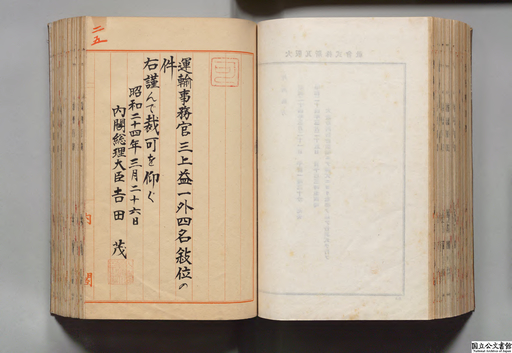 二五
運輸事務官三上益一外四名叙位の
件
右謹んで裁可を仰ぐ
昭和二十四年三月二十六日
内閣総理大臣吉田 茂
内 閣
国立公文書館
National Archives of Japan